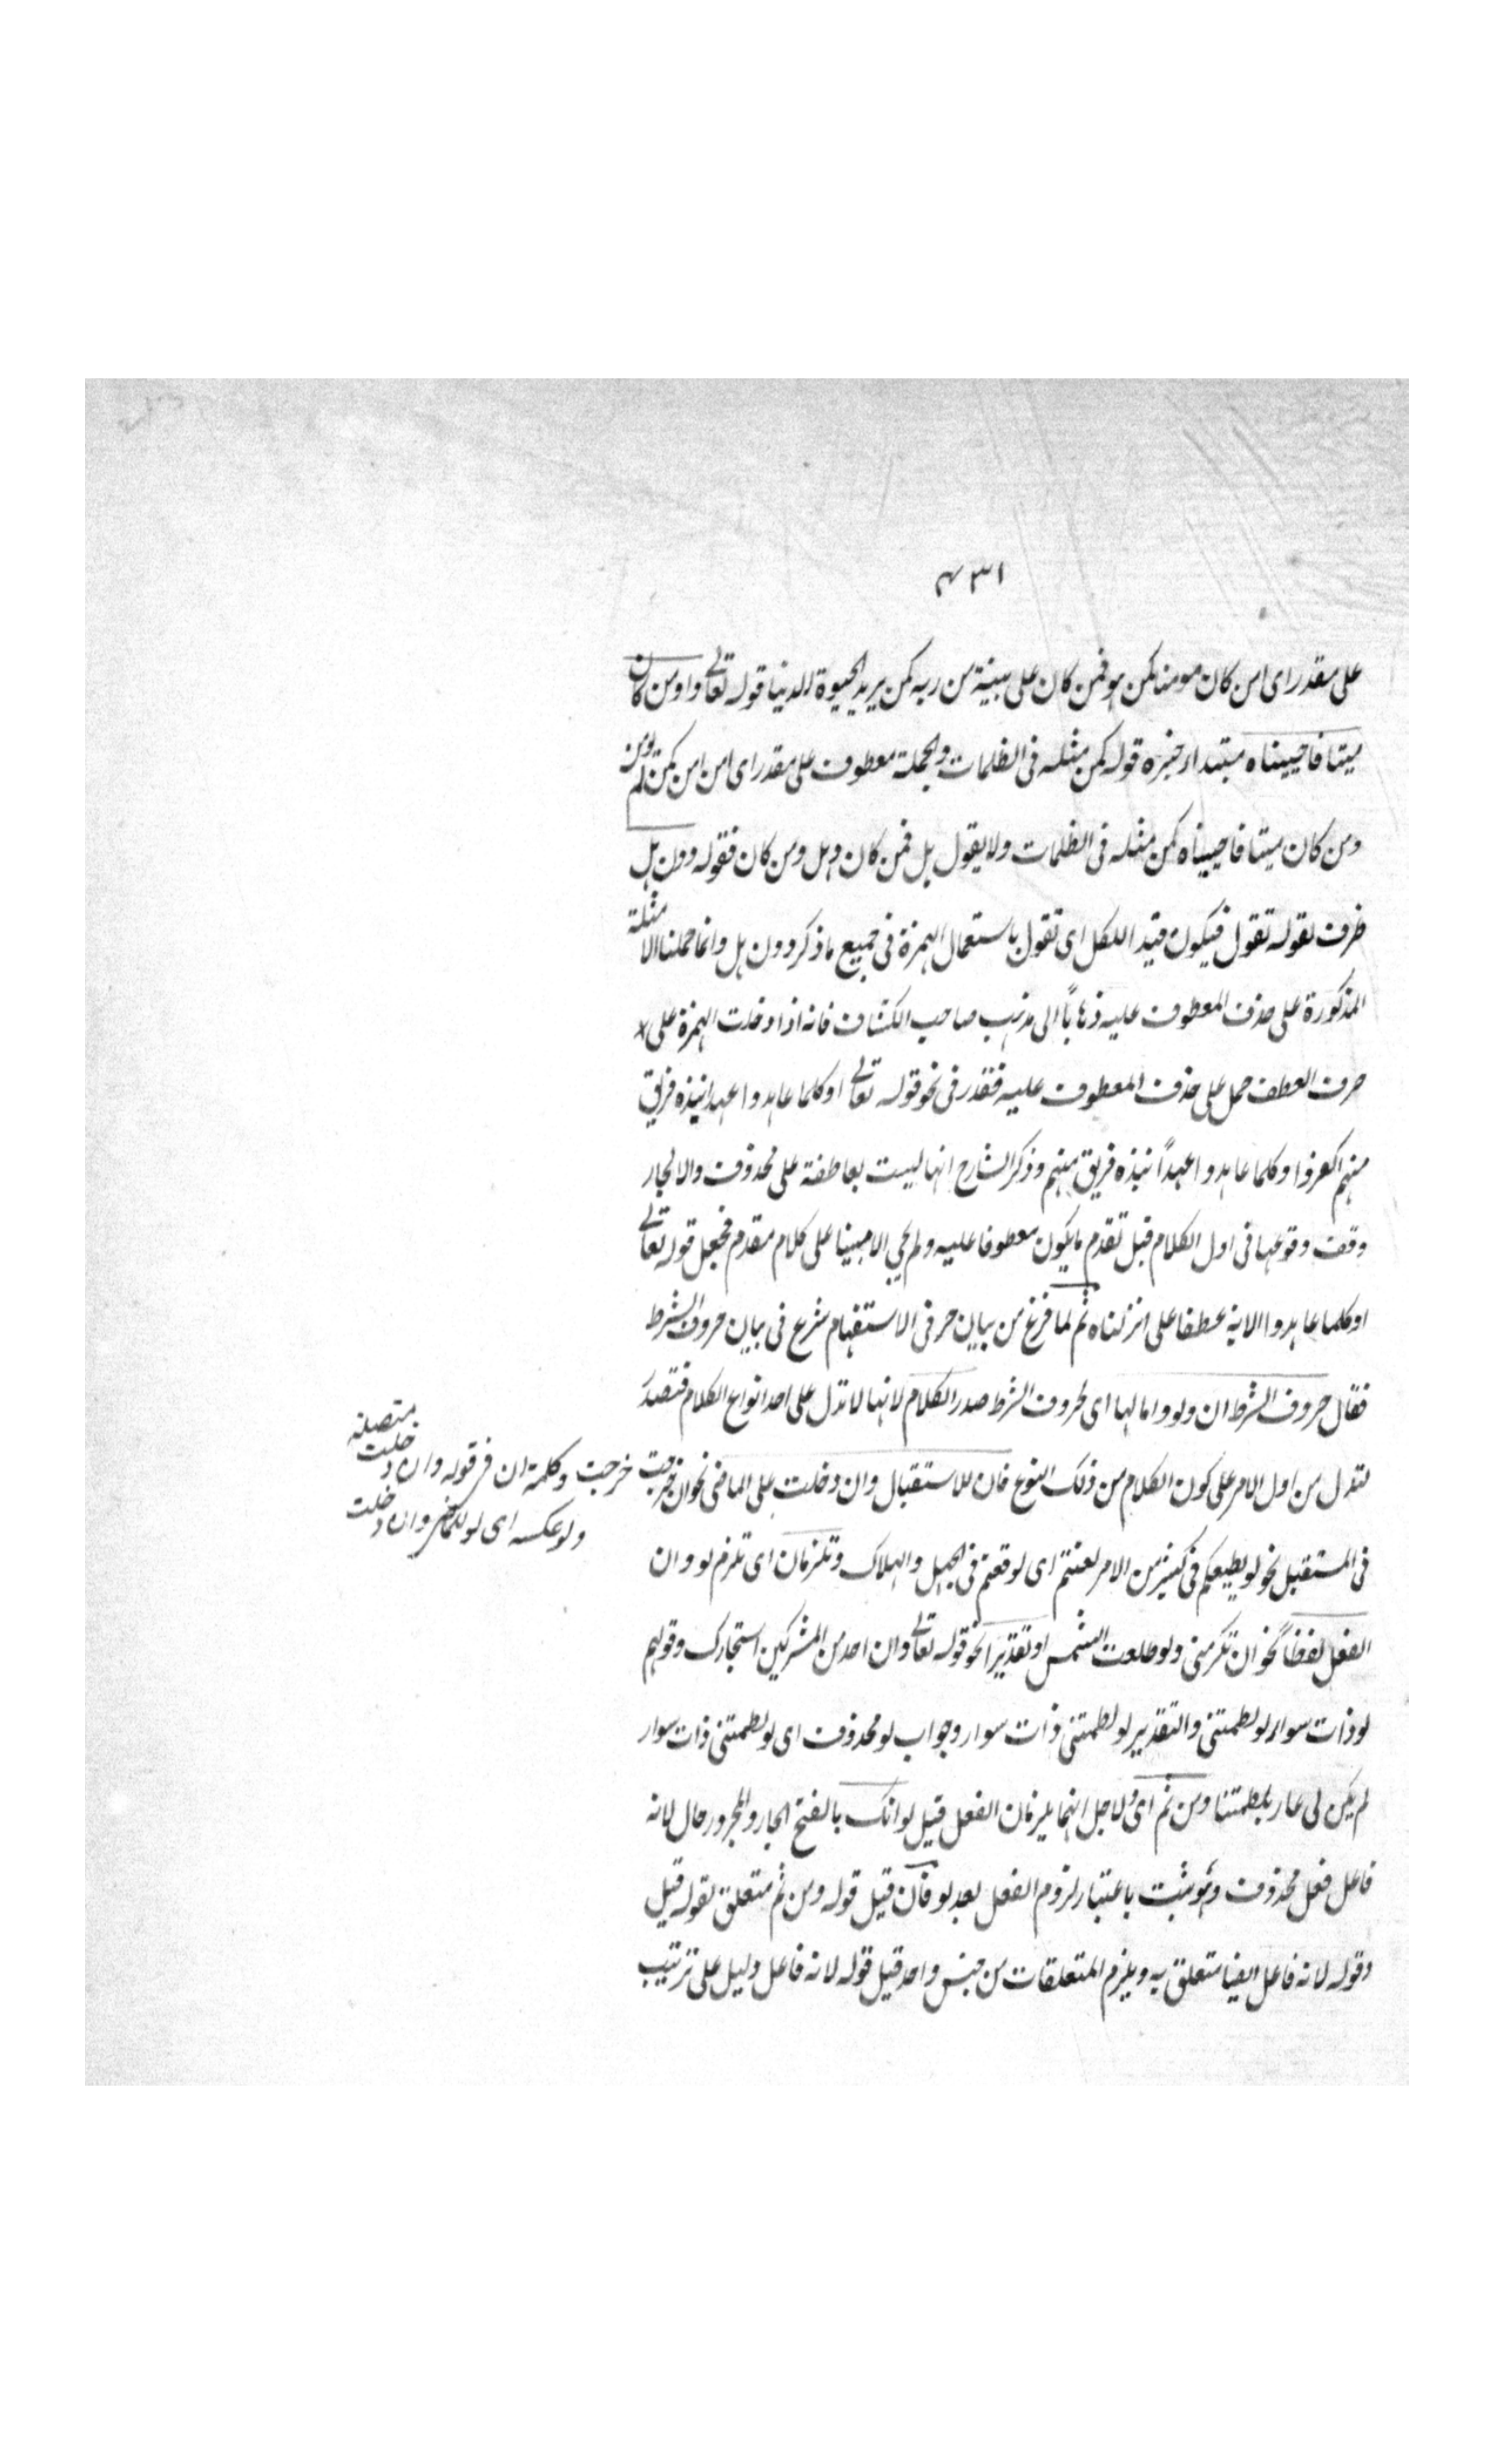 ٤٣١
على مقدر اى امن كان مومنا كمن هو فمن كان على بينة من ربه كمن يريد الحيوة الدنيا قوله تعالى واومن كان
ميتا فاحييناه مبتداء خبره قوله كمن مثله فى الظلمات والجملة معطوف على مقدر اى امن امن كمن لم يومن
ومن كان ميتا فاحييناه كمن مثله فى الظلمات ولا يقول هل فمن كان وهل ومن كان فقوله دون هل
ظرف لقوله تقول فيكون قيد اللكل اى تقول باستعمال الهمزة فى جميع ما ذكر دون هل وانما حملنا الامثلة
المذكورة على حذف المعطوف عليه ذهابًا الى مذهب صاحب الكشاف فانه اذا دخلت الهمزة على
حرف العطف حمل على حذف المعطوف عليه فقدر فى نحو قوله تعالى اوكلما عاهدوا عهدا نبذه فريق
منهم اكفروا وكلما عاهدوا عهدًا نبذه فريق منهم وذكر الشارح انها ليست بعاطفة على محذوف والا لجاز
وقف وقوعها فى اول الكلام قبل تقدم ما يكون معطوفا عليه ولم يجئ الا مبنيا على كلام مقدم فجعل قوله تعالى
اوكلما عاهدوا الاية عطفا على انزلناه ثم لما فرغ من بيان حرفى الاستفهام شرع فى بيان حروف الشرط
فقال حروف الشرط ان ولو واما لها اى لحروف الشرط صدر الكلام لانها لا تدل على احد انواع الكلام فتصدر
لتدل من اول الامر على كون الكلام من ذلك النوع فان للاستقبال وان دخلت على الماضى نحو ان خرجت خرجت وكلمة ان فى قوله وان دخلت متصلة
ولو عكسه اى لو للماضى وان دخلت
فى المستقبل نحو لو يطيعكم فى كثير من الامر لعنتم اى لوقعتم فى الجهل والهلاك وتلزمان اى تلزم لو وان
الفعل لفظًا نحو ان تكرمنى ولو طلعت الشمس او تقديرا نحو قوله تعالى وان احد من المشركين استجارك وقولهم
لو ذات سوار لو لطمتنى والتقدير لو لطمتنى ذات سوار وجواب لو محذوف اى لو لطمتنى ذات سوار
لم يكن لى عار بلطمتنا ومن ثم اى ولاجل انهما يلزمان الفعل قيل لو انك بالفتح الجار والمجرور حال لانه
فاعل فعل محذوف وهو ثبت باعتبار لزوم الفعل بعد لو فان قيل قوله ومن ثم متعلق بقوله قيل
وقوله لانه فاعل ايضا متعلق به ويلزم المتعلقات من جنس واحد قيل قوله لانه فاعل دليل على ترتيب